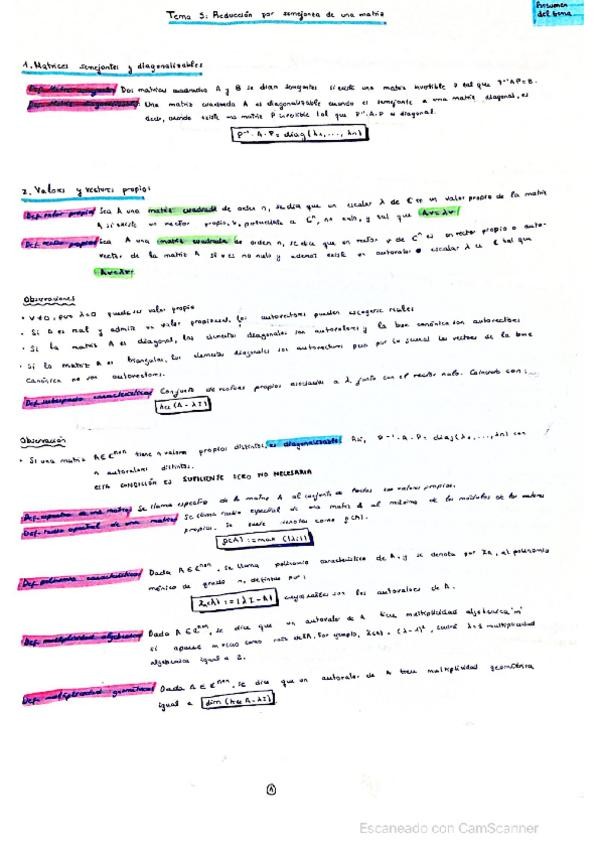 Tema 5: Reducción por semejanza de una matriz
Resumen
del tema
1. Matrices semejantes y diagonalizables
Def. Matrices semejantes Dos matrices cuadradas A y B se dicen semejantes si existe una matriz invertible P tal que P⁻¹AP=B.
Def. Matriz diagonalizable Una matriz cuadrada A es diagonalizable cuando es semejante a una matriz diagonal, es
decir, cuando existe una matriz P invertible tal que P⁻¹·A·P es diagonal.
P⁻¹·A·P = diag(λ₁,...,λn)
2. Valores y vectores propios
Def. valor propio Sea A una matriz cuadrada de orden n, se dice que un escalar λ de C es un valor propio de la matriz
A si existe un vector propio, v, perteneciente a Cⁿ, no nulo, y tal que Av=λv
Def. vector propio Sea A una matriz cuadrada de orden n, se dice que un vector v de Cⁿ es un vector propio o auto-
vector de la matriz A si v es no nulo y además existe un autovalor o escalar λ de C tal que
Av=λv
Observaciones
• v≠0, pero λ=0 puede ser valor propio
• Si A es real y admite un valor propio real, los autovectores pueden escogerse reales
• Si la matriz A es diagonal, los elementos diagonales son autovalores y la base canónica son autovectores
• Si la matriz A es triangular, los elementos diagonales son autovectores pero por lo general los vectores de la base
canónica no son autovectores.
Def. subespacio característico Conjunto de vectores propios asociados a λ junto con el vector nulo. Coincide con:
ker(A-λI)
Observación
• Si una matriz A∈Cⁿˣⁿ tiene n valores propios distintos, es diagonalizable. Así, P⁻¹·A·P = diag(λ₁,...,λn) con
n autovalores distintos.
ESTA CONDICIÓN ES SUFICIENTE PERO NO NECESARIA
Def. espectro de una matriz Se llama espectro de la matriz A al conjunto de todos sus valores propios.
Def. radio espectral de una matriz Se llama radio espectral de una matriz A al máximo de los módulos de los valores
propios. Se suele denotar como ρ(A).
ρ(A) := max {|λi|}
Def. polinomio característico Dada A∈Cⁿˣⁿ, se llama polinomio característico de A, y se denota por χA, al polinomio
mónico de grado n, definido por:
χA(λ) := |λI-A| cuyas raíces son los autovalores de A.
Def. multiplicidad algebraica Dada A∈Cⁿˣⁿ, se dice que un autovalor de A tiene multiplicidad algebraica "m"
si aparece m veces como raíz de χA. Por ejemplo, χA(λ) = (λ-1)², tendrá λ=1 multiplicidad
algebraica igual a 2.
Def. multiplicidad geométrica Dada A∈Cⁿˣⁿ, se dice que un autovalor de A tiene multiplicidad geométrica
igual a dim (ker A-λI)
1
Escaneado con CamScanner